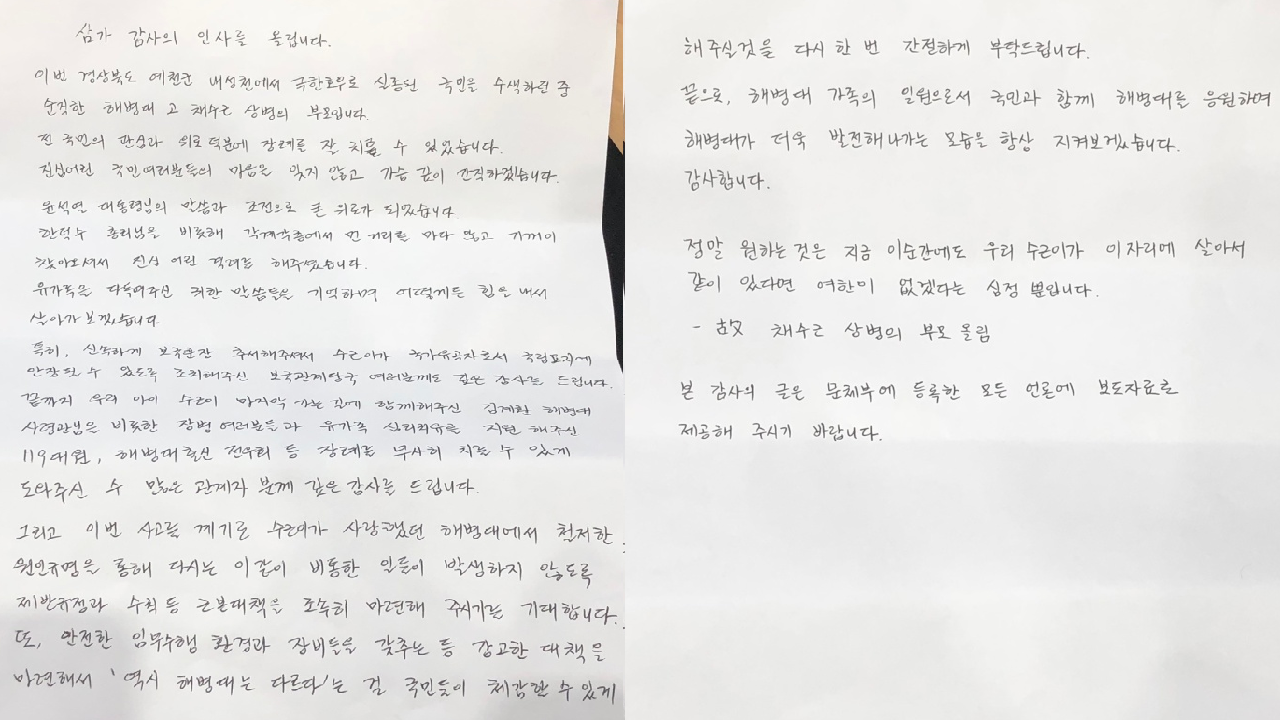 삼가 감사의 인사를 올립니다.
이번 경상북도 예천군 내성천에서 극한호우로 실종된 국민을 수색하던 중
순직한 해병대 고 채수근 상병의 부모입니다.
전 국민의 관심과 위로 덕분에 장례를 잘 치를 수 있었습니다.
진심어린 국민여러분들의 마음을 잊지 않고 가슴 깊이 간직하겠습니다.
윤석열 대통령님의 말씀과 조전으로 큰 위로가 되었습니다.
한덕수 총리님을 비롯해 각계각층에서 먼 거리를 마다 않고 기꺼이
찾아오셔서 진심 어린 격려를 해주셨습니다.
유가족을 다독여주신 귀한 말씀들을 기억하며 어떻게든 힘을 내서
살아가 보겠습니다.
특히, 신속하게 보국훈장 추서해주셔서 수근이가 국가유공자로서 국립묘지에
안장될 수 있도록 조치해주신 보국관계당국 여러분께도 깊은 감사를 드립니다.
끝까지 우리 아이 수근이 마지막 가는 길에 함께해주신 김계환 해병대
사령관님을 비롯한 장병 여러분들과 유가족 심리치유를 지원 해주신
119대원, 해병대출신 전우회 등 장례를 무사히 치를 수 있게
도와주신 수 많은 관계자 분께 깊은 감사를 드립니다.
그리고 이번 사고를 계기로 수근이가 사랑했던 해병대에서 철저한
원인규명을 통해 다시는 이같이 비통한 일들이 발생하지 않도록
제반규정과 수칙 등 근본대책을 조속히 마련해 주시기를 기대합니다.
또, 안전한 임무수행 환경과 장비들을 갖추는 등 강고한 대책을
마련해서 '역시 해병대는 다르다'는 걸 국민들이 체감할 수 있게
해주실것을 다시 한 번 간절하게 부탁드립니다.
끝으로, 해병대 가족의 일원으로서 국민과 함께 해병대를 응원하며
해병대가 더욱 발전해나가는 모습을 항상 지켜보겠습니다.
감사합니다.
정말 원하는 것은 지금 이순간에도 우리 수근이가 이자리에 살아서
같이 있다면 여한이 없겠다는 심정 뿐입니다.
- 故 채수근 상병의 부모 올림
본 감사의 글은 문체부에 등록한 모든 언론에 보도자료로
제공해 주시기 바랍니다.